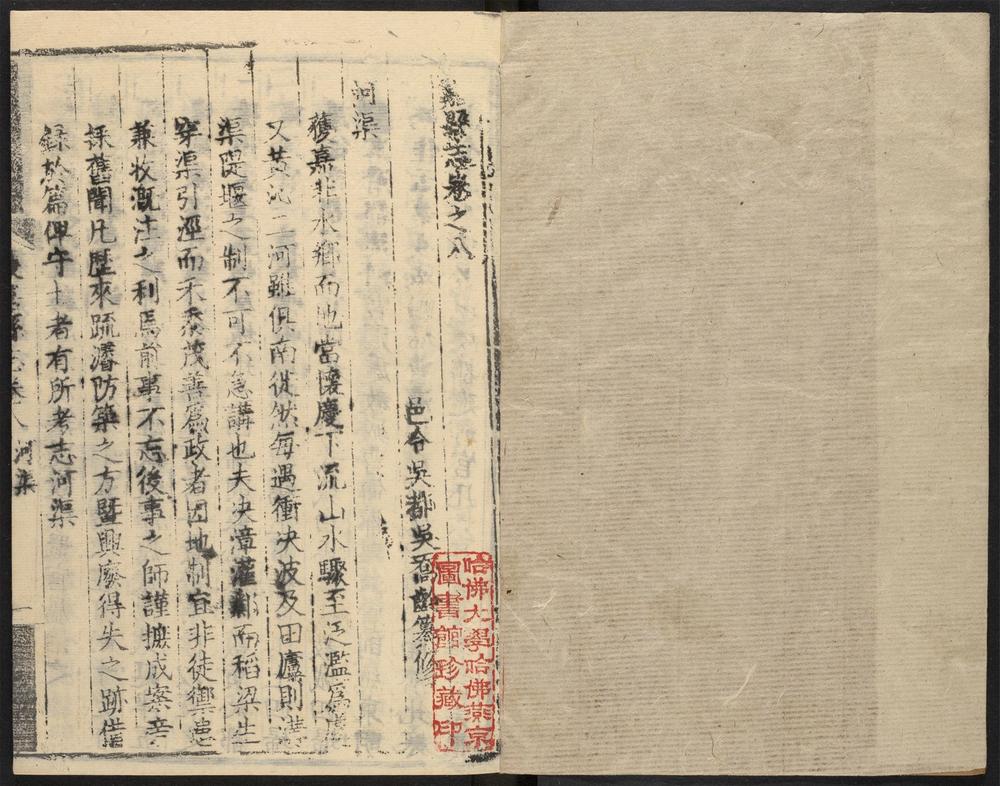 嘉縣志卷之八
邑令吳都吳喬齡纂修
河渠
獲嘉非水鄉而地當懷慶下流山水驟至泛濫為
又黃沁二河雖俱南徙然每遇衝決波及田廬則溝
渠隄堰之制不可不急講也夫決漳灌鄴而稻粱生
穿渠引涇而禾黍茂善為政者因地制宜非徒禦患
兼收溉注之利焉前事不忘後事之師謹據成案音
採舊聞凡歷來疏濬防築之方暨興廢得失之跡備
錄於篇俾守土者有所考志河渠
獲嘉縣志卷八 河渠 一
哈佛大學哈佛燕京
圖書館珍藏印